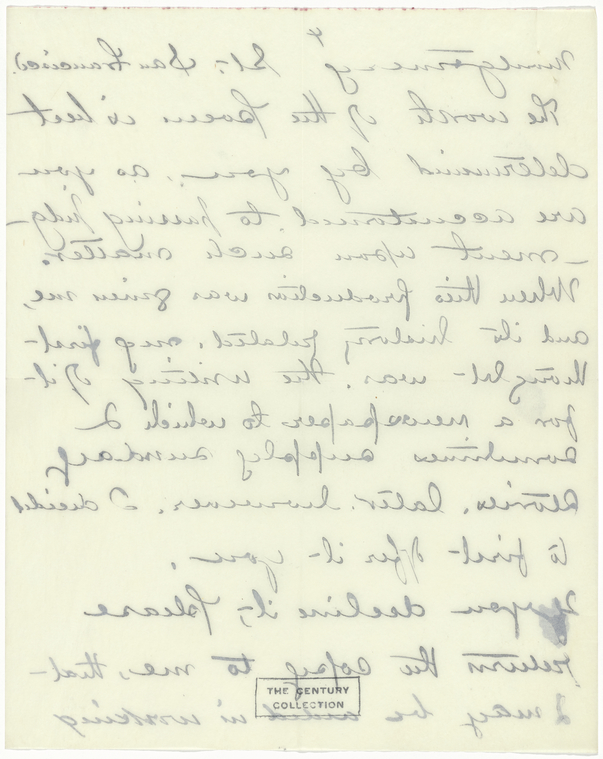 Montgomery St., San Francisco.
The worth of the Poem is best
determined by you, as you
are accustomed to passing judg-
-ment upon such matter.
When this production was given me,
and its history related, my first
thought was, the writing of it
for a newspaper to which I
sometimes supply sunday
stories, later, however, I decided
to first offer it you.
If you decline it, please
return the copy to me, that
I may be aided in working
THE CENTURY
COLLECTION